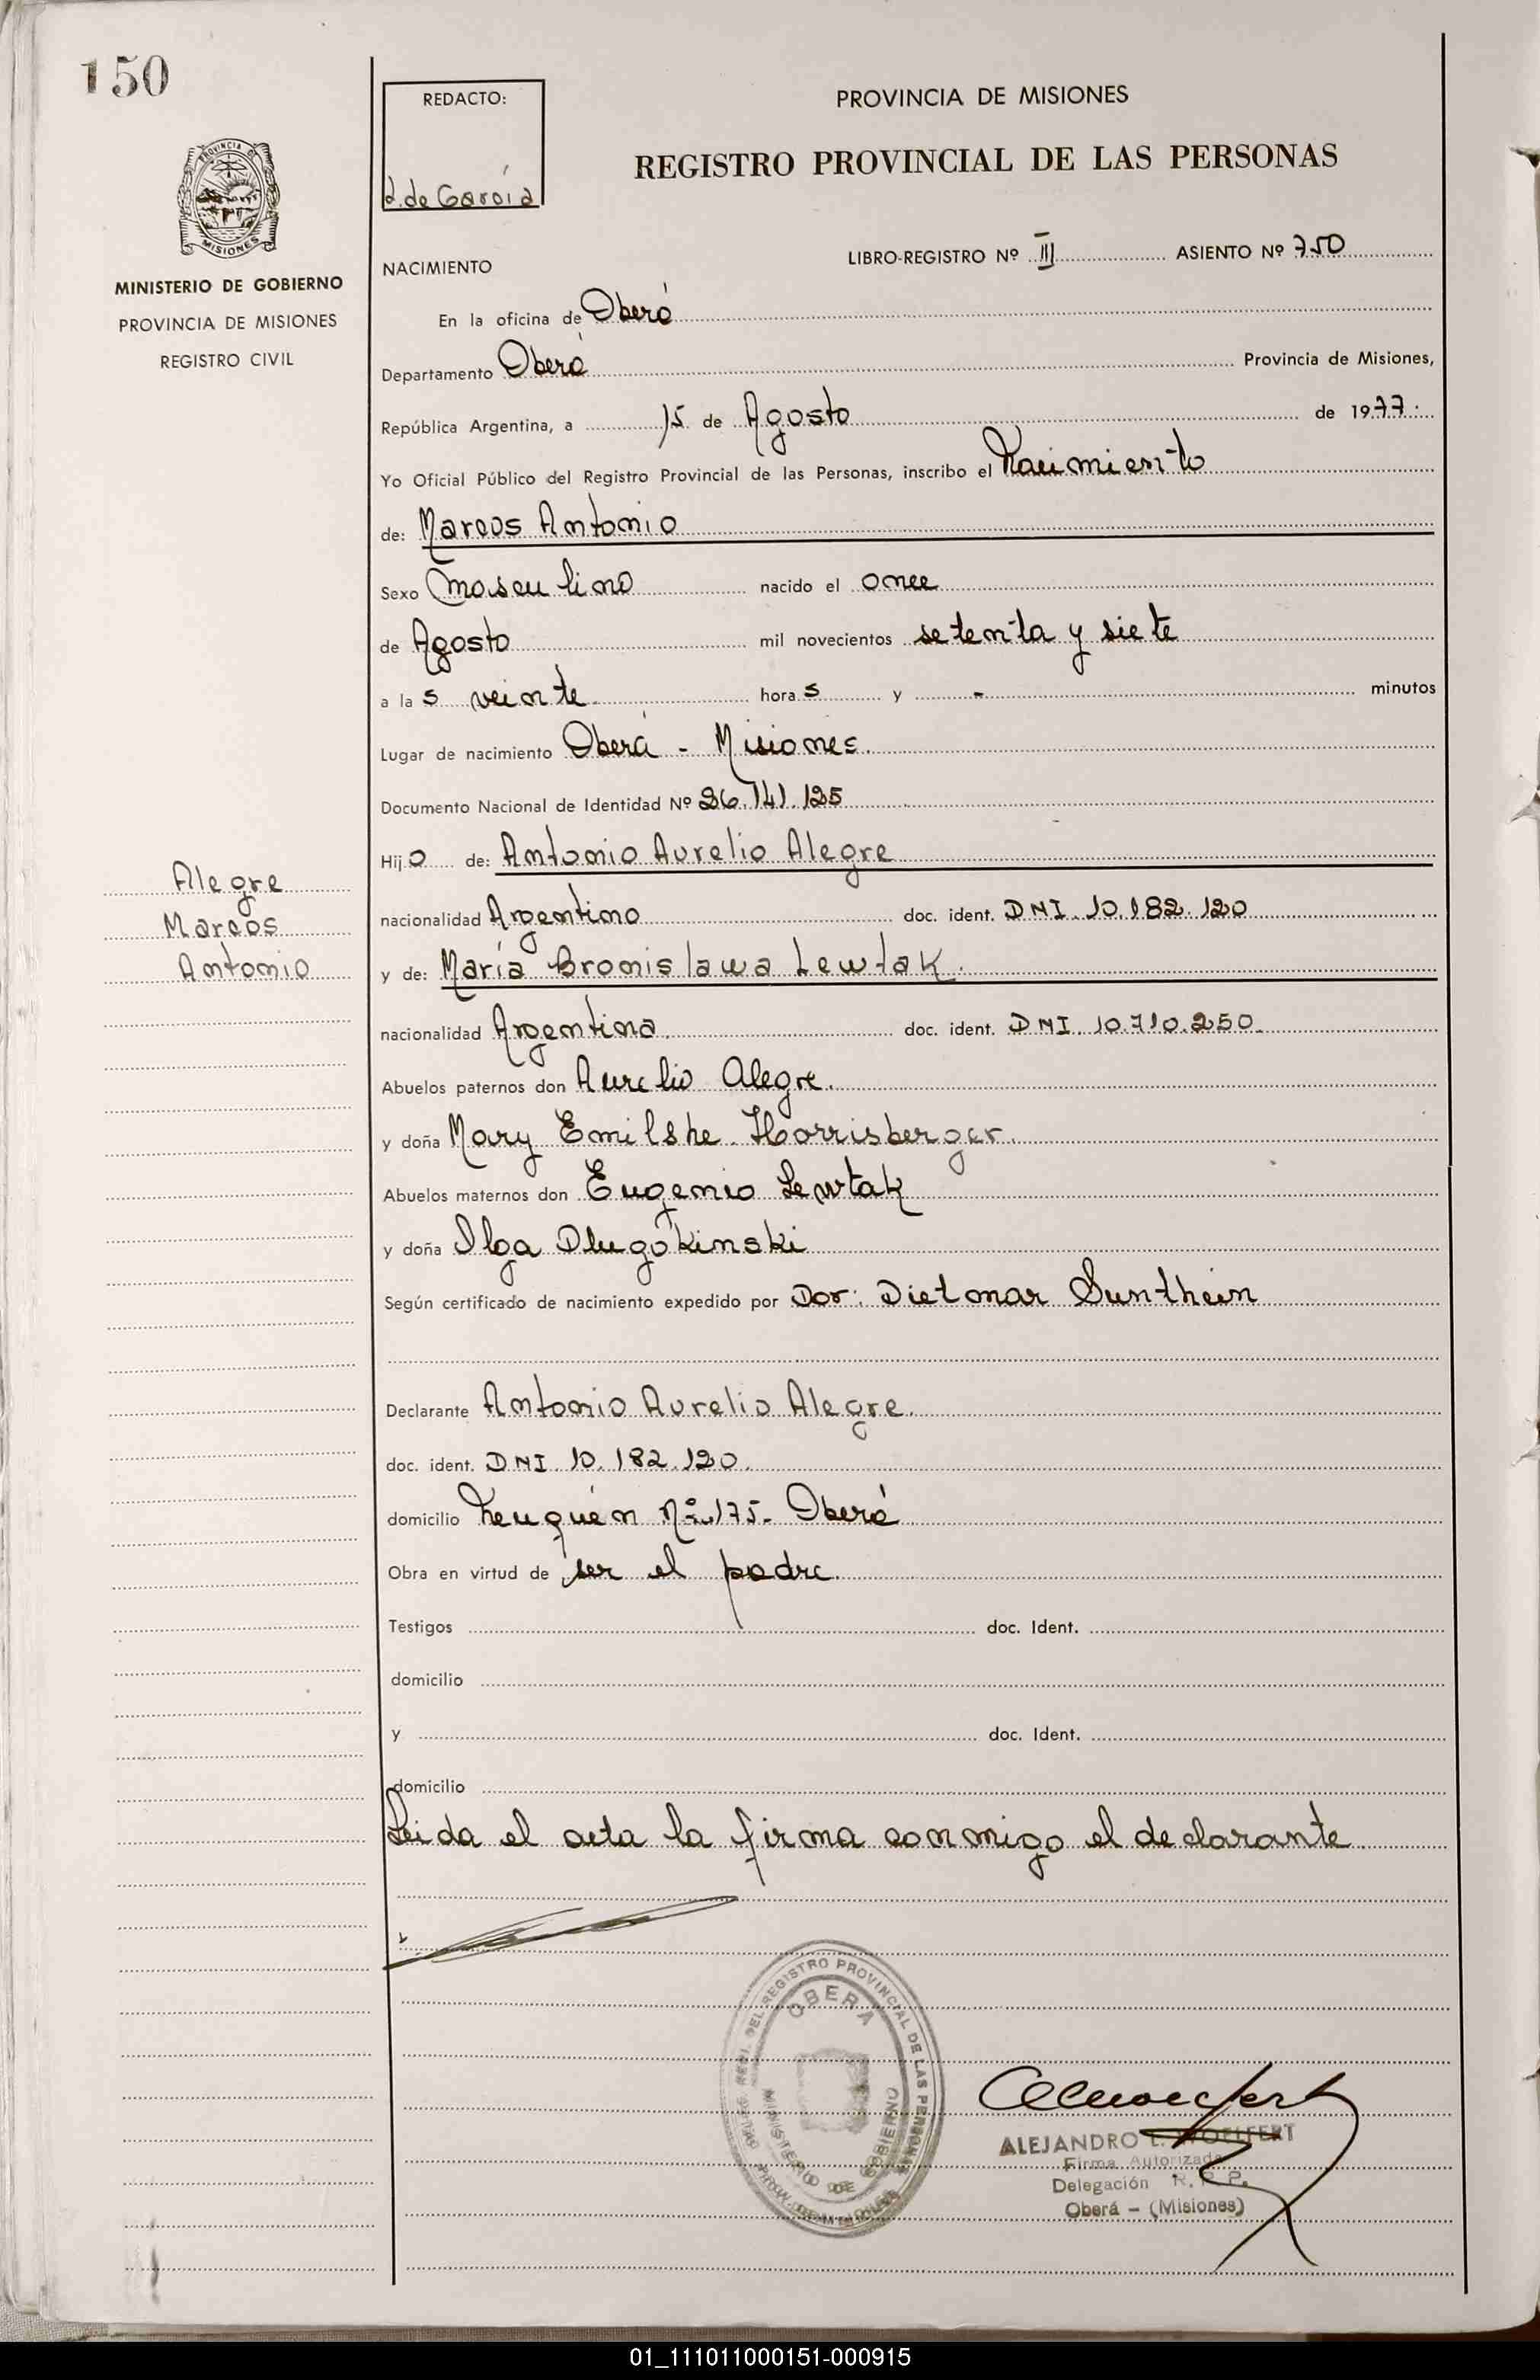 150
REDACTO:
d. de García
PROVINCIA DE MISIONES
REGISTRO PROVINCIAL DE LAS PERSONAS
PROVINCIA DE
MISIONES
MINISTERIO DE GOBIERNO
PROVINCIA DE MISIONES
REGISTRO CIVIL
NACIMIENTO
LIBRO-REGISTRO Nº III ASIENTO Nº 750
En la oficina de Oberá
Departamento Oberá Provincia de Misiones,
República Argentina, a 15 de Agosto de 1977.
Yo Oficial Público del Registro Provincial de las Personas, inscribo el Nacimiento
de: Marcos Antonio
Sexo masculino nacido el once
de Agosto mil novecientos setenta y siete
a la s veinte hora s y - minutos
Lugar de nacimiento Oberá - Misiones.
Documento Nacional de Identidad Nº 26.141.125
Hij o de: Antonio Aurelio Alegre
Alegre
Marcos
Antonio
nacionalidad Argentino doc. ident. DNI. 10.182.120
y de: María Bronislawa Lewtak.
nacionalidad Argentina. doc. ident. DNI. 10.710.250.
Abuelos paternos don Aurelio Alegre.
y doña Mary Emilshe Horrisberger.
Abuelos maternos don Eugenio Lewtak
y doña Olga Dlugokinski
Según certificado de nacimiento expedido por Dor: Dietmar Sunthein
Declarante Antonio Aurelio Alegre.
doc. ident. DNI. 10.182.120.
domicilio Neuquén Nº 175- Oberá
Obra en virtud de ser el padre.
Testigos doc. Ident.
domicilio
y doc. Ident.
domicilio
Leida el acta la firma conmigo el declarante
DEL REGISTRO PROVINCIAL DE LAS PERSONAS
OBERA
MINISTERIO DE GOBIERNO
ALEJANDRO L. WOELFERT
Firma Autorizada
Delegación R. P. P.
Oberá - (Misiones)
01_111011000151-000915